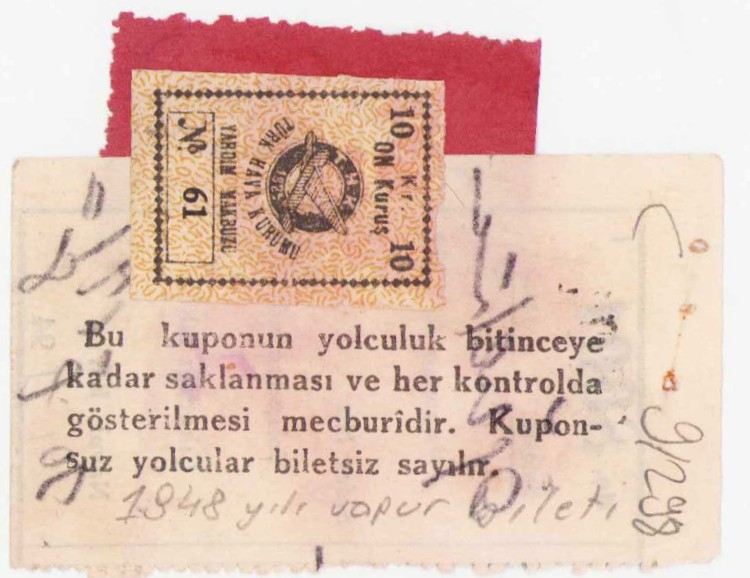 10 Kr. 10
ON Kuruş
TÜRK HAVA KURUMU
YARDIM MAKBUZU
No 61
Bu kuponun yolculuk bitinceye
kadar saklanması ve her kontrolda
gösterilmesi mecburîdir. Kupon-
suz yolcular biletsiz sayılır.
1948 yılı vapur bileti
91298